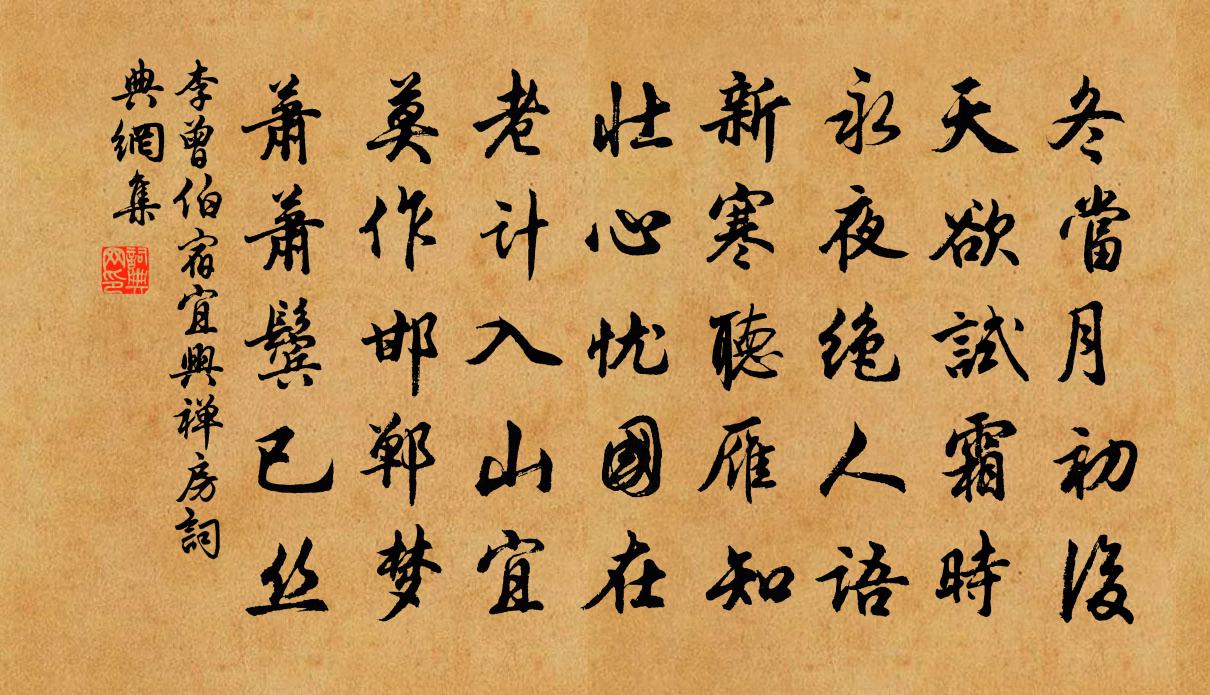 冬當月初後
天欲試霜時
永夜绝人語
新寒聽雁知
壮心忧國在
老计入山宜
莫作邯鄲梦
蕭蕭鬓已丝
李曾伯宿宜興禅房詞
典網集
詞典网印